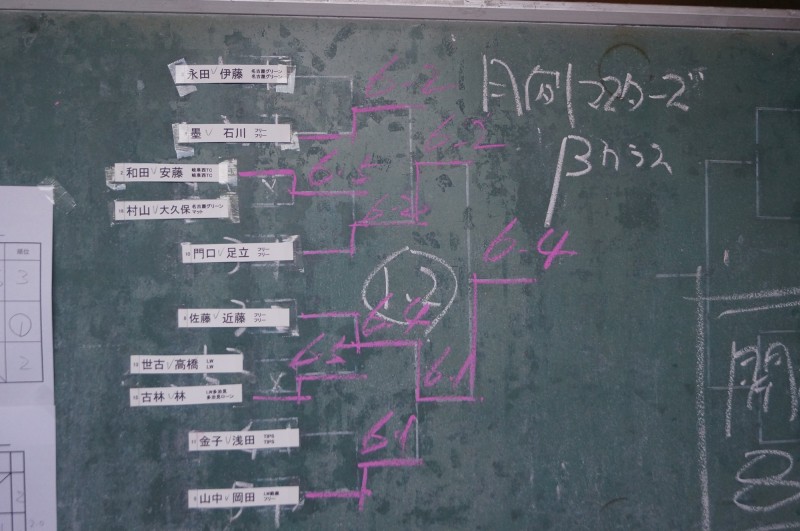 永田 V 伊藤 名古屋グリーン
名古屋グリーン
6-2
月例マスターズ
墨 V 石川 フリー
フリー
6-2
Bクラス
和田 V 安藤 岐阜西TC
岐阜西TC
6-5
村山 V 大久保 名古屋グリーン
マット
6-2
門口 V 足立 フリー
フリー
6-4
1,2
佐藤 V 近藤 フリー
フリー
6-4
世古 V 高橋 LW
LW
6-5
6-1
古林 V 林
金子 V 浅田
6-1
山中 V 岡田
フリー
3
1
2
開
8